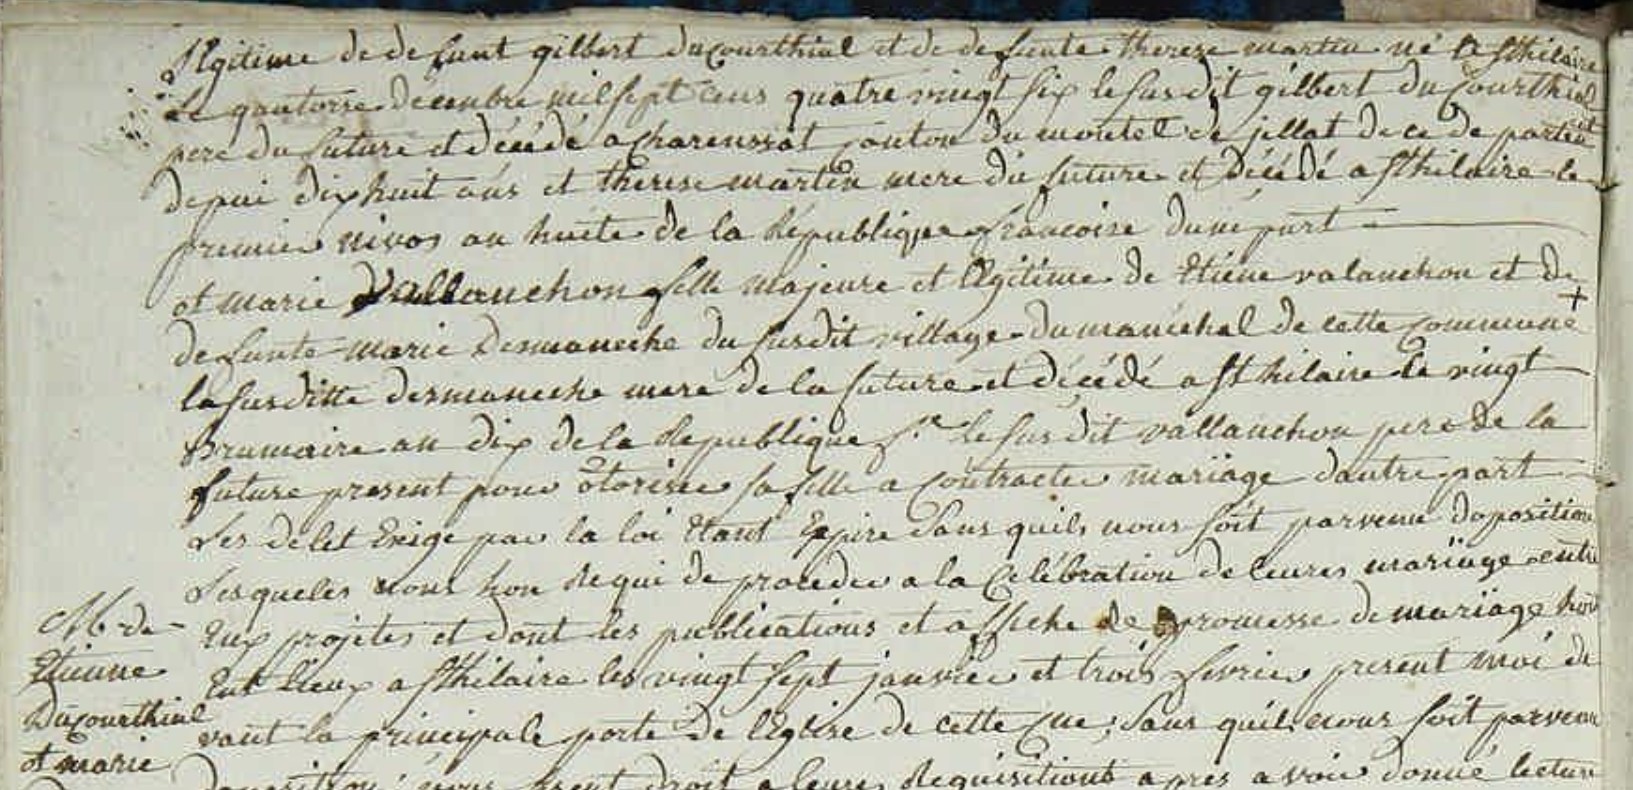 légitime de defunt gilbert ducourthial et de defunte therese martin né a st hilaire
Le quatorse decembre mil sept cens quatre vingt six le susdit gilbert ducourthial
pere du future et décédé a charensat canton du montel de jellat de ce departement
depui dix huit ans et therese martin mere du future et décédé a st hilaire le
premier nivos an huite de la République francoise dune part
et marie Vallanchon fille majeure et légitime de Etiene valanchon et de
defunte marie Desmaneche du susdit village du marichal de cette commune +
la susditte desmaneche mere de la future et décédé a st hilaire le vingt
Brumaire an dix de la Republique f.se le susdit vallanchon pere de la
future present pour otoriser sa fille a contracter mariage dautre part
Les delet Exige par la loi Etant Expire sans quils nous soit parvenu doposition
Lesqueles nous hon Requi de proceder a la Celébration de leures mariage entre
Eux projetes et dont les publications et affiche de promesse de mariage hont
Eut lieux a st hilaire les vingt sept janvier et trois fevrier present moi de
vant la principale porte de lEglise de cette cne; sans quil nous soit parvenu
doposition; nous fesent droit a leures Requisitions apres avoir donné lecture
M. de
Etienne
Ducourthial
et marie